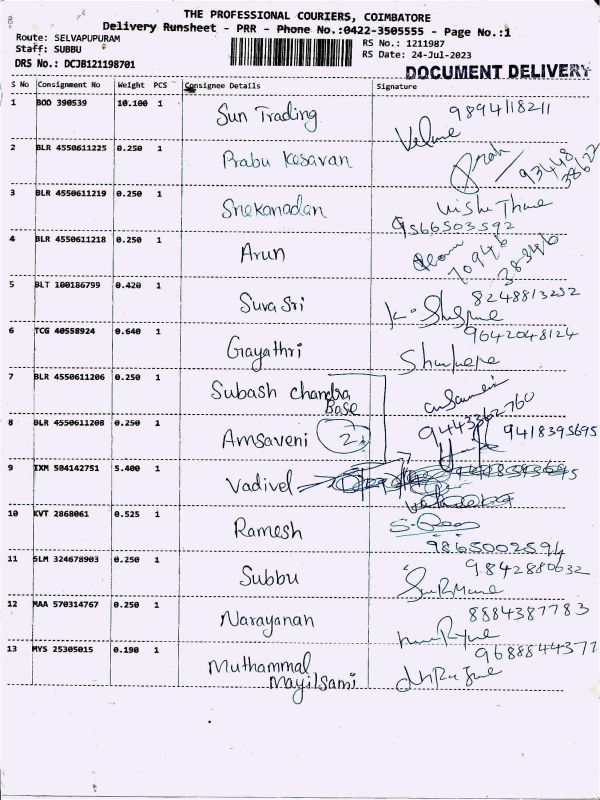 THE PROFESSIONAL COURIERS, COIMBATORE
Delivery Runsheet - PRR - Phone No.:0422-3505555 - Page No.:1
Route: SELVAPUPURAM
RS No.: 1211987
Staff: SUBBU
RS Date: 24-Jul-2023
DRS No.: DCJB121198701
DOCUMENT DELIVERY
S No Consignment No Weight PCS Consignee Details Signature
1 BOD 390539 10.100 1 Sun Trading 9894118211
2 BLR 4550611225 0.250 1 Prabu Kesavan 93448 38622
3 BLR 4550611219 0.250 1 Snekanadan
9566503592
4 BLR 4550611218 0.250 1 Arun 70946 38346
5 BLT 100186799 0.420 1 Suva Sri 8248813252
6 TCG 40558924 0.640 1 Gayathri 9642048124
7 BLR 4550611206 0.250 1 Subash Chandra Bose
9443362760
8 BLR 4550611208 0.250 1 Amsaveni 2 9418395695
9 IXM 504142751 5.400 1 Vadivel
10 KVT 2868061 0.525 1 Ramesh
9865002594
11 SLM 324678903 0.250 1 Subbu 9842880032
12 MAA 570314767 0.250 1 Narayanan 8884387783
13 MYS 25305015 0.190 1 Muthammal Mayilsami 9688844377